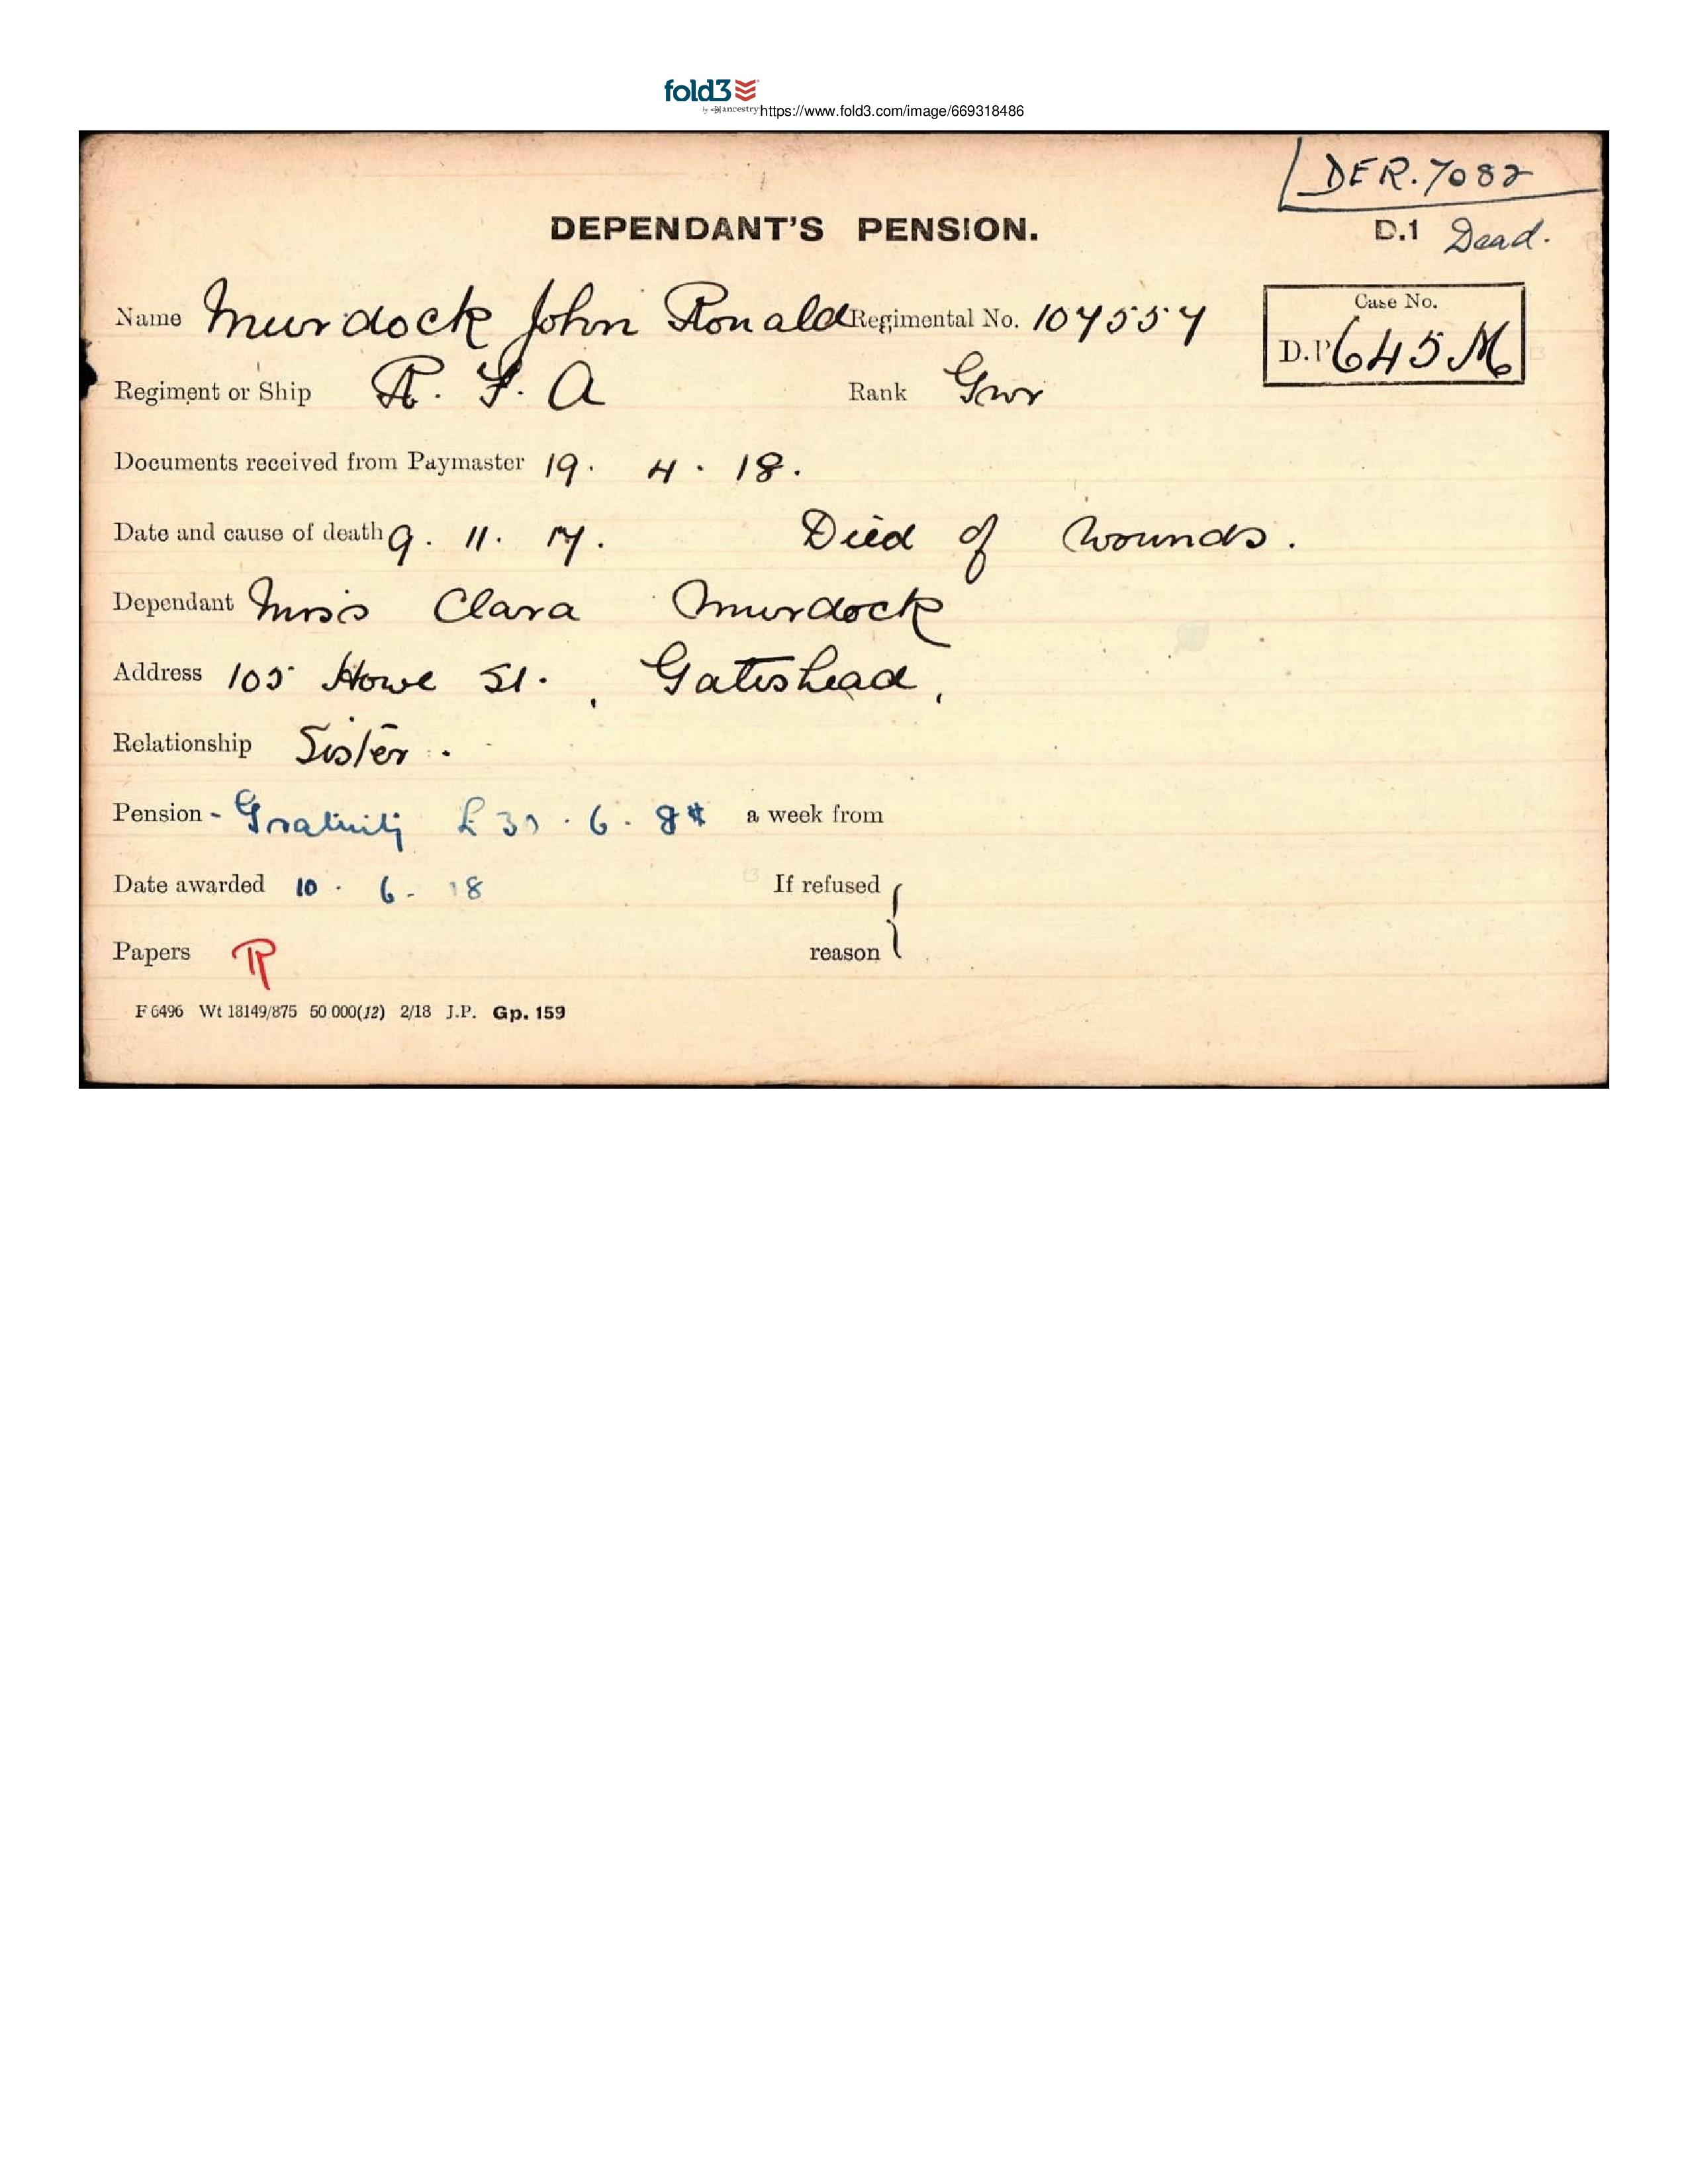 fold3
by ancestry https://www.fold3.com/image/669318486
DER. 7082
DEPENDANT'S PENSION.
D.1 Dead.
Name Murdock John Ronald Regimental No. 107557
Case No.
D.P 645M
Regiment or Ship R. F. A Rank Gnr
Documents received from Paymaster 19. 4. 18.
Date and cause of death 9. 11. 17. Died of Wounds.
Dependant Miss Clara Murdock
Address 105 Howe St., Gateshead,
Relationship Sister.
Pension - Gratuity £ . 6. 8 a week from
Date awarded 10. 6. 18 If refused
Papers reason
F 6496 Wt 18149/875 50 000(12) 2/18 J.P. Gp. 159